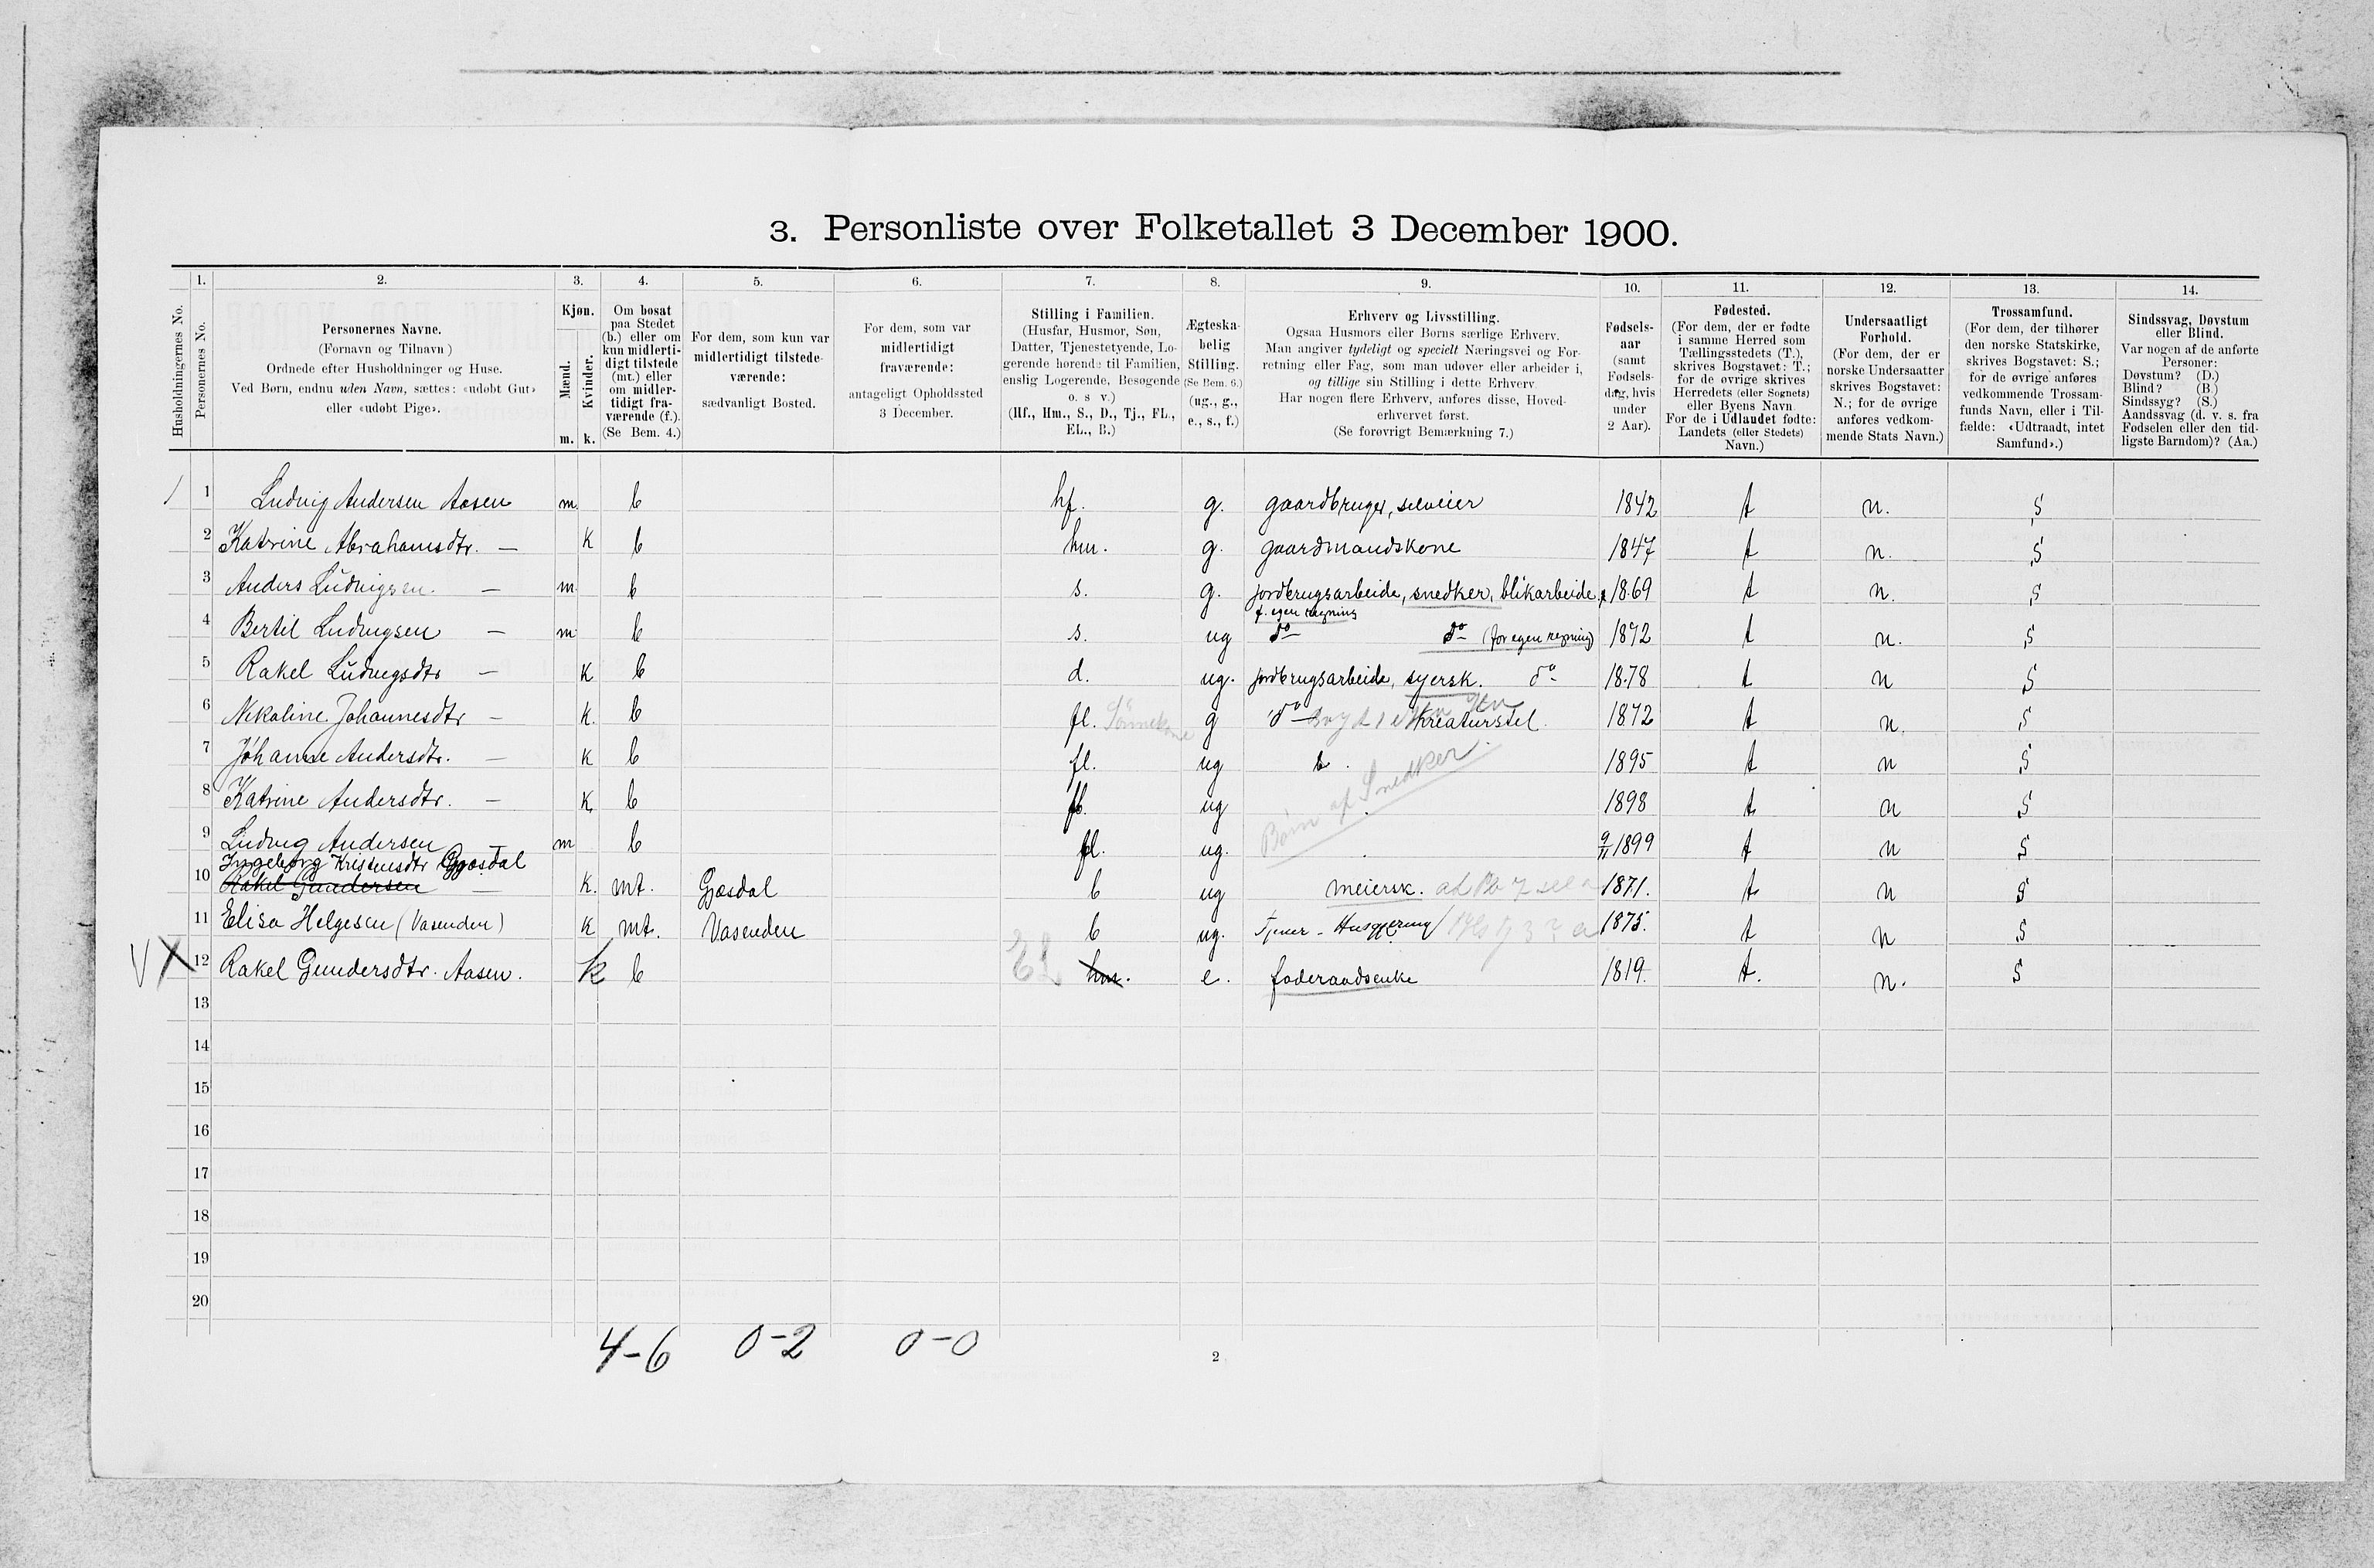 3. Personliste over Folketallet 3 December 1900.
1. 2. 3. 4. 5. 6. 7. 8. 9. 10. 11. 12. 13. 14.
Husholdningernes No.
Personernes No.
Personernes Navne.
(Fornavn og Tilnavn)
Ordnede efter Husholdninger og Huse.
Ved Børn, endnu uden Navn, sættes: «udøbt Gut»
eller «udøbt Pige».
Kjøn.
Mænd.
Kvinder.
m. k.
Om bosat
paa Stedet
(b.) eller om
kun midlerti-
digt tilstede
(mt.) eller
om midler-
tidigt fra-
værende (f.).
(Se Bem. 4.)
For dem, som kun var
midlertidigt tilstede-
værende:
sædvanligt Bosted.
For dem, som var
midlertidigt
fraværende:
antageligt Opholdssted
3 December.
Stilling i Familien.
(Husfar, Husmor, Søn,
Datter, Tjenestetyende, Lo-
gerende hørende til Familien,
enslig Logerende, Besøgende
o. s v.)
(Hf., Hm., S., D., Tj., FL.,
EL., B.)
Ægteska-
belig
Stilling.
(Se Bem. 6.)
(ug., g.,
e., s., f.)
Erhverv og Livsstilling.
Ogsaa Husmors eller Børns særlige Erhverv.
Man angiver tydeligt og specielt Næringsvei og For-
retning eller Fag, som man udøver eller arbeider i,
og tillige sin Stilling i dette Erhverv.
Har nogen flere Erhverv, anføres disse, Hoved-
erhvervet først.
(Se forøvrigt Bemærkning 7.)
Fødsels-
aar
(samt
Fødsels-
dag, hvis
under
2 Aar).
Fødested.
(For dem, der er fødte
i samme Herred som
Tællingsstedets (T.),
skrives Bogstavet: T.;
for de øvrige skrives
Herredets (eller Sognets)
eller Byens Navn.
For de i Udlandet fødte:
Landets (eller Stedets)
Navn.)
Undersaatligt
Forhold.
(For dem, der er
norske Undersaatter
skrives Bogstavet:
N.; for de øvrige
anføres vedkom-
mende Stats Navn.)
Trossamfund.
(For dem, der tilhører
den norske Statskirke,
skrives Bogstavet: S.;
for de øvrige anføres
vedkommende Trossam-
funds Navn, eller i Til-
fælde: «Udtraadt, intet
Samfund».)
Sindssvag, Døvstum
eller Blind.
Var nogen af de anførte
Personer:
Døvstum? (D.)
Blind? (B.)
Sindssyg? (S.)
Aandssvag (d. v. s. fra
Fødselen eller den tid-
ligste Barndom)? (Aa.)
1 Ludvig Andersen Aasen m. b hf. g. gaardbruger, selveier 1842 t n. S
2 Katrine Abrahamsdtr. — k b hm. g. gaardmandskone 1847 t n. S
3 Anders Ludvigsen. — m b s. g. jordbrugsarbeide, snedker, blikarbeide 1869 t n. S
f. egen regning
4 Bertil Ludvigsen — m b s. ug do do (for egen regning) 1872 t n. S
5 Rakel Ludvigsdtr — k b d. ug. jordbrugsarbeide, syersk. do 1878 t n S
6 Nikoline Johannesdtr — k. b fl. Sønnekone g do kreaturstel. 1872 t n. S
7 Johanne Andersdtr. — k b fl. ug b. 1895 t n S
Børn af Snedker
8 Katrine Andersdtr. — k. b fl. ug 1898 t n S
9 Ludvig Andersen — m b fl. ug. 9/11 1899 t n S
Ingeborg Kristensdtr Gjæsdal
10 Rakel Gundersen — k. mt. Gjæsdal b ug meiersk. 1871. t n S
11 Elisa Helgesen (Vasenden) k mt. Vasenden b ug. Tjener - Husgjerning 1875. t n S
12 Rakel Gundersdtr. Aasen. k b EL hm. e. føderaadsenke 1819. t. n. S
13
14
15
16
17
18
19
20
4-6 0-2 0-0
2